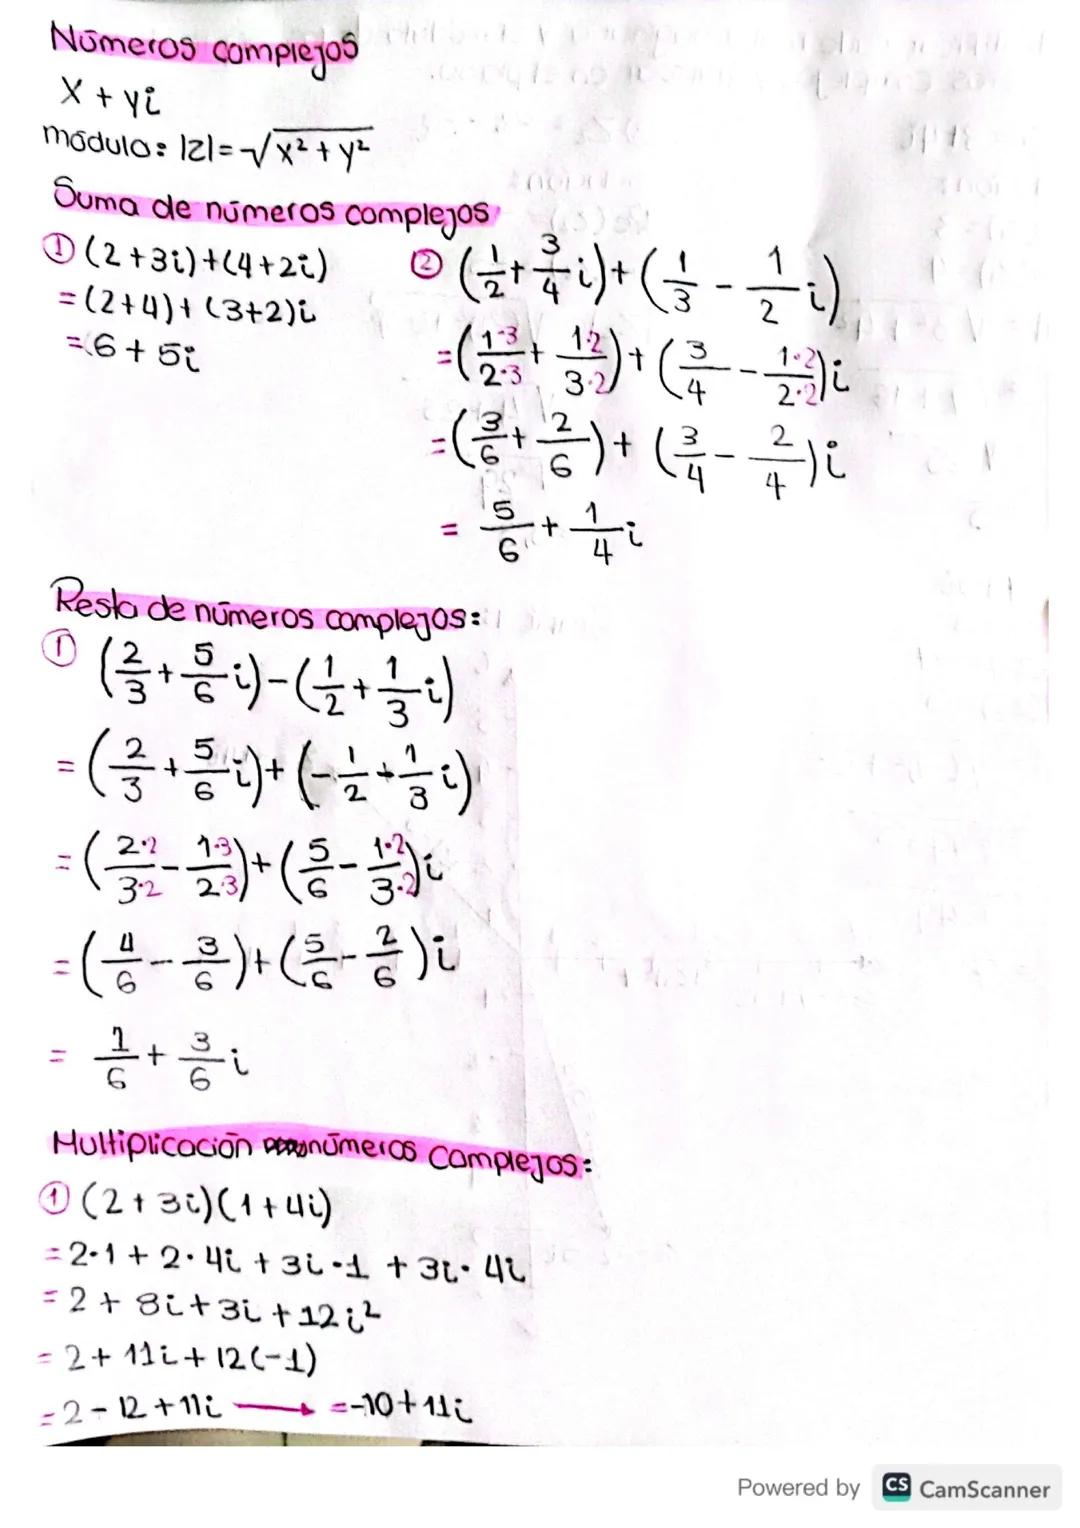 Números complejos
x + yi
módulo: |z| = √x² + y²
Suma de números complejos
① (2+3i)+(4+2i)
= (2+4)+(3+2)i
= 6 + 5i
② (1/2 + 3/4 i) + (1/3 - 1/2 i)
= (1·3/2·3 + 1·2/3·2) + (3/4 - 1·2/2·2)i
= (3/6 + 2/6) + (3/4 - 2/4)i
= 5/6 + 1/4 i
Resta de números complejos:
① (2/3 + 5/6 i) - (1/2 + 1/3 i)
= (2/3 + 5/6 i) + (-1/2 + 1/3 i)
= (2·2/3·2 - 1·3/2·3) + (5/6 - 1·2/3·2)i
= (4/6 - 3/6) + (5/6 - 2/6)i
= 1/6 + 3/6 i
Multiplicación números complejos:
① (2+3i)(1+4i)
= 2·1 + 2·4i + 3i·1 + 3i·4i
= 2 + 8i + 3i + 12i²
= 2 + 11i + 12(-1)
= 2 - 12 + 11i → = -10 + 11i
Powered by CS CamScanner